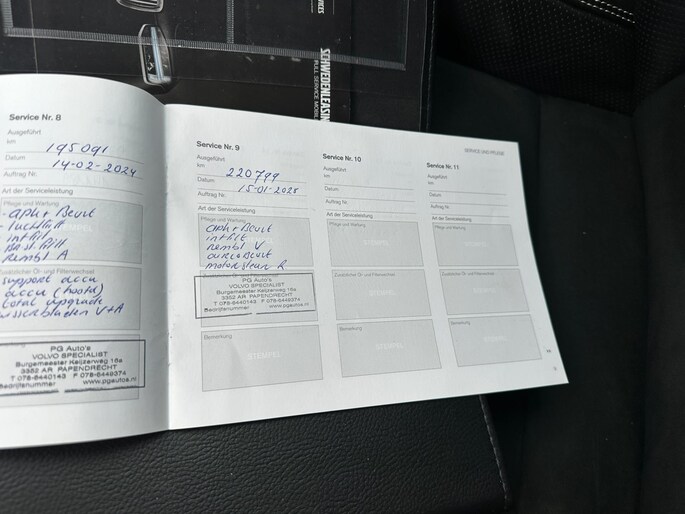 SCHWEDENLEASING
FULL SERVICE MOBIL
SERVICE UND PFLEGE
Service Nr. 8
Ausgeführt
km 195091
Datum 14-02-2024
Auftrag Nr.
Art der Serviceleistung
Pflege und Wartung
- apk + Beurt
- luchtfilt
intfilt
Rembl A
Zusätzlicher Öl- und Filterwechsel
support accu
accu (hoofd)
total upgrade
wisserbladen V+A
PG Auto's
VOLVO SPECIALIST
Burgemeester Keijzerweg 16a
3352 AR PAPENDRECHT
T 078-6440143 F 078-6449374
Bedrijfsnummer www.pgautos.nl
Service Nr. 9
Ausgeführt
km 220799
Datum 15-01-2025
Auftrag Nr.
Art der Serviceleistung
Pflege und Wartung
apk + Beurt
intfilt
Rembl V
motorsteun R
PG Auto's
VOLVO SPECIALIST
Burgemeester Keijzerweg 16a
3352 AR PAPENDRECHT
T 078-6440143 F 078-6449374
Bedrijfsnummer www.pgautos.nl
Bemerkung
STEMPEL
Service Nr. 10
Ausgeführt
km
Datum
Auftrag Nr.
Art der Serviceleistung
Pflege und Wartung
STEMPEL
Zusätzlicher Öl- und Filterwechsel
STEMPEL
Bemerkung
STEMPEL
Service Nr. 11
Ausgeführt
km
Datum
Auftrag Nr.
Art der Serviceleistung
Pflege und Wartung
STEMPEL
Zusätzlicher Öl- und Filterwechsel
STEMPEL
Bemerkung
STEMPEL